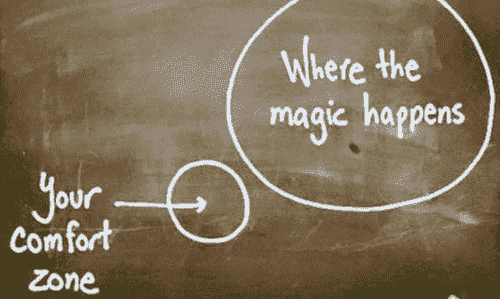 Where the
magic happens
Your
comfort
zone